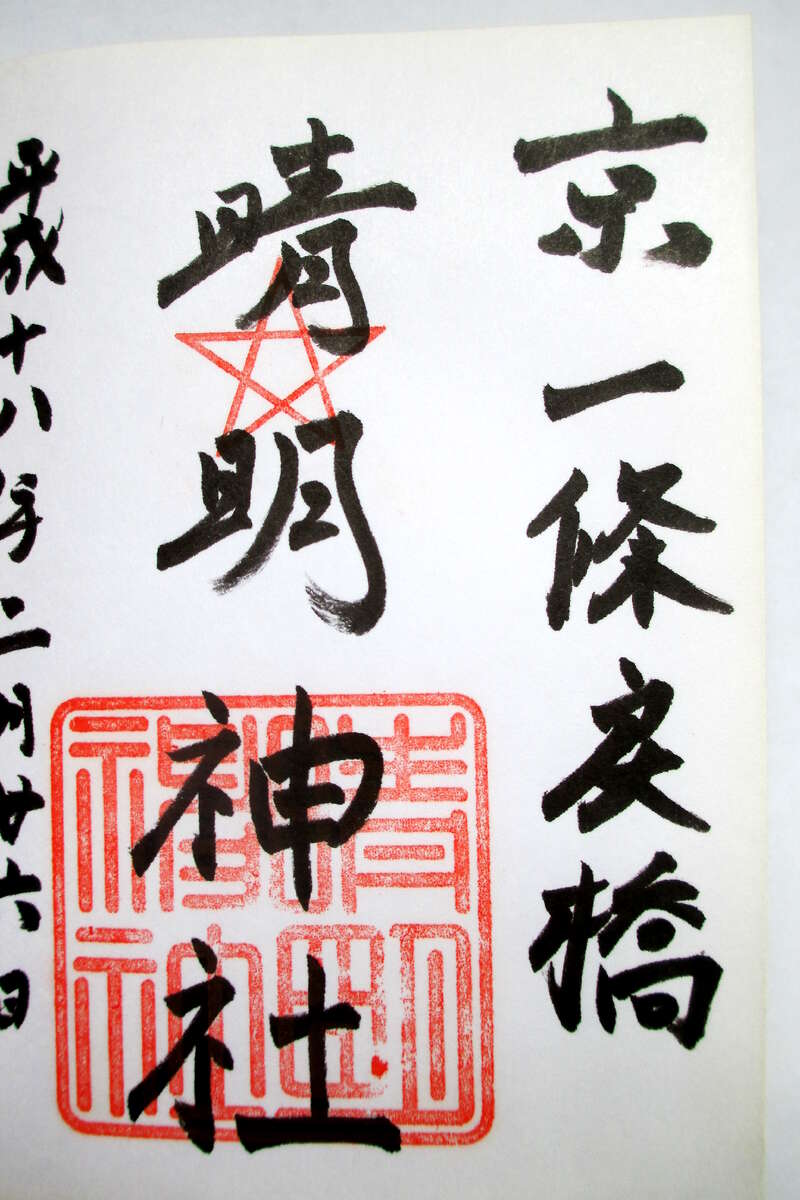 京一條戻橋
晴明神社
平成十八年二月廿六日